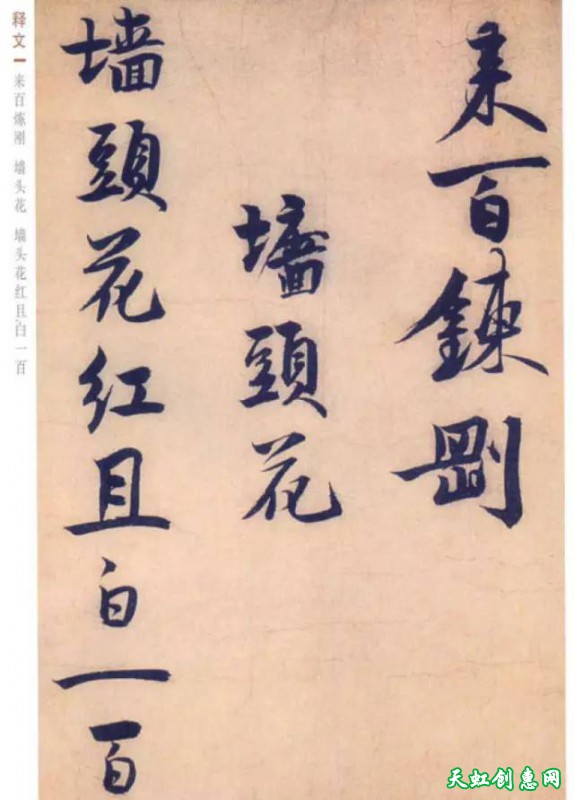 来百鍊剛
墙頭花
墙頭花红且白一百
释文
来百炼刚 墙头花 墙头花红且白一百
天虹创惠网